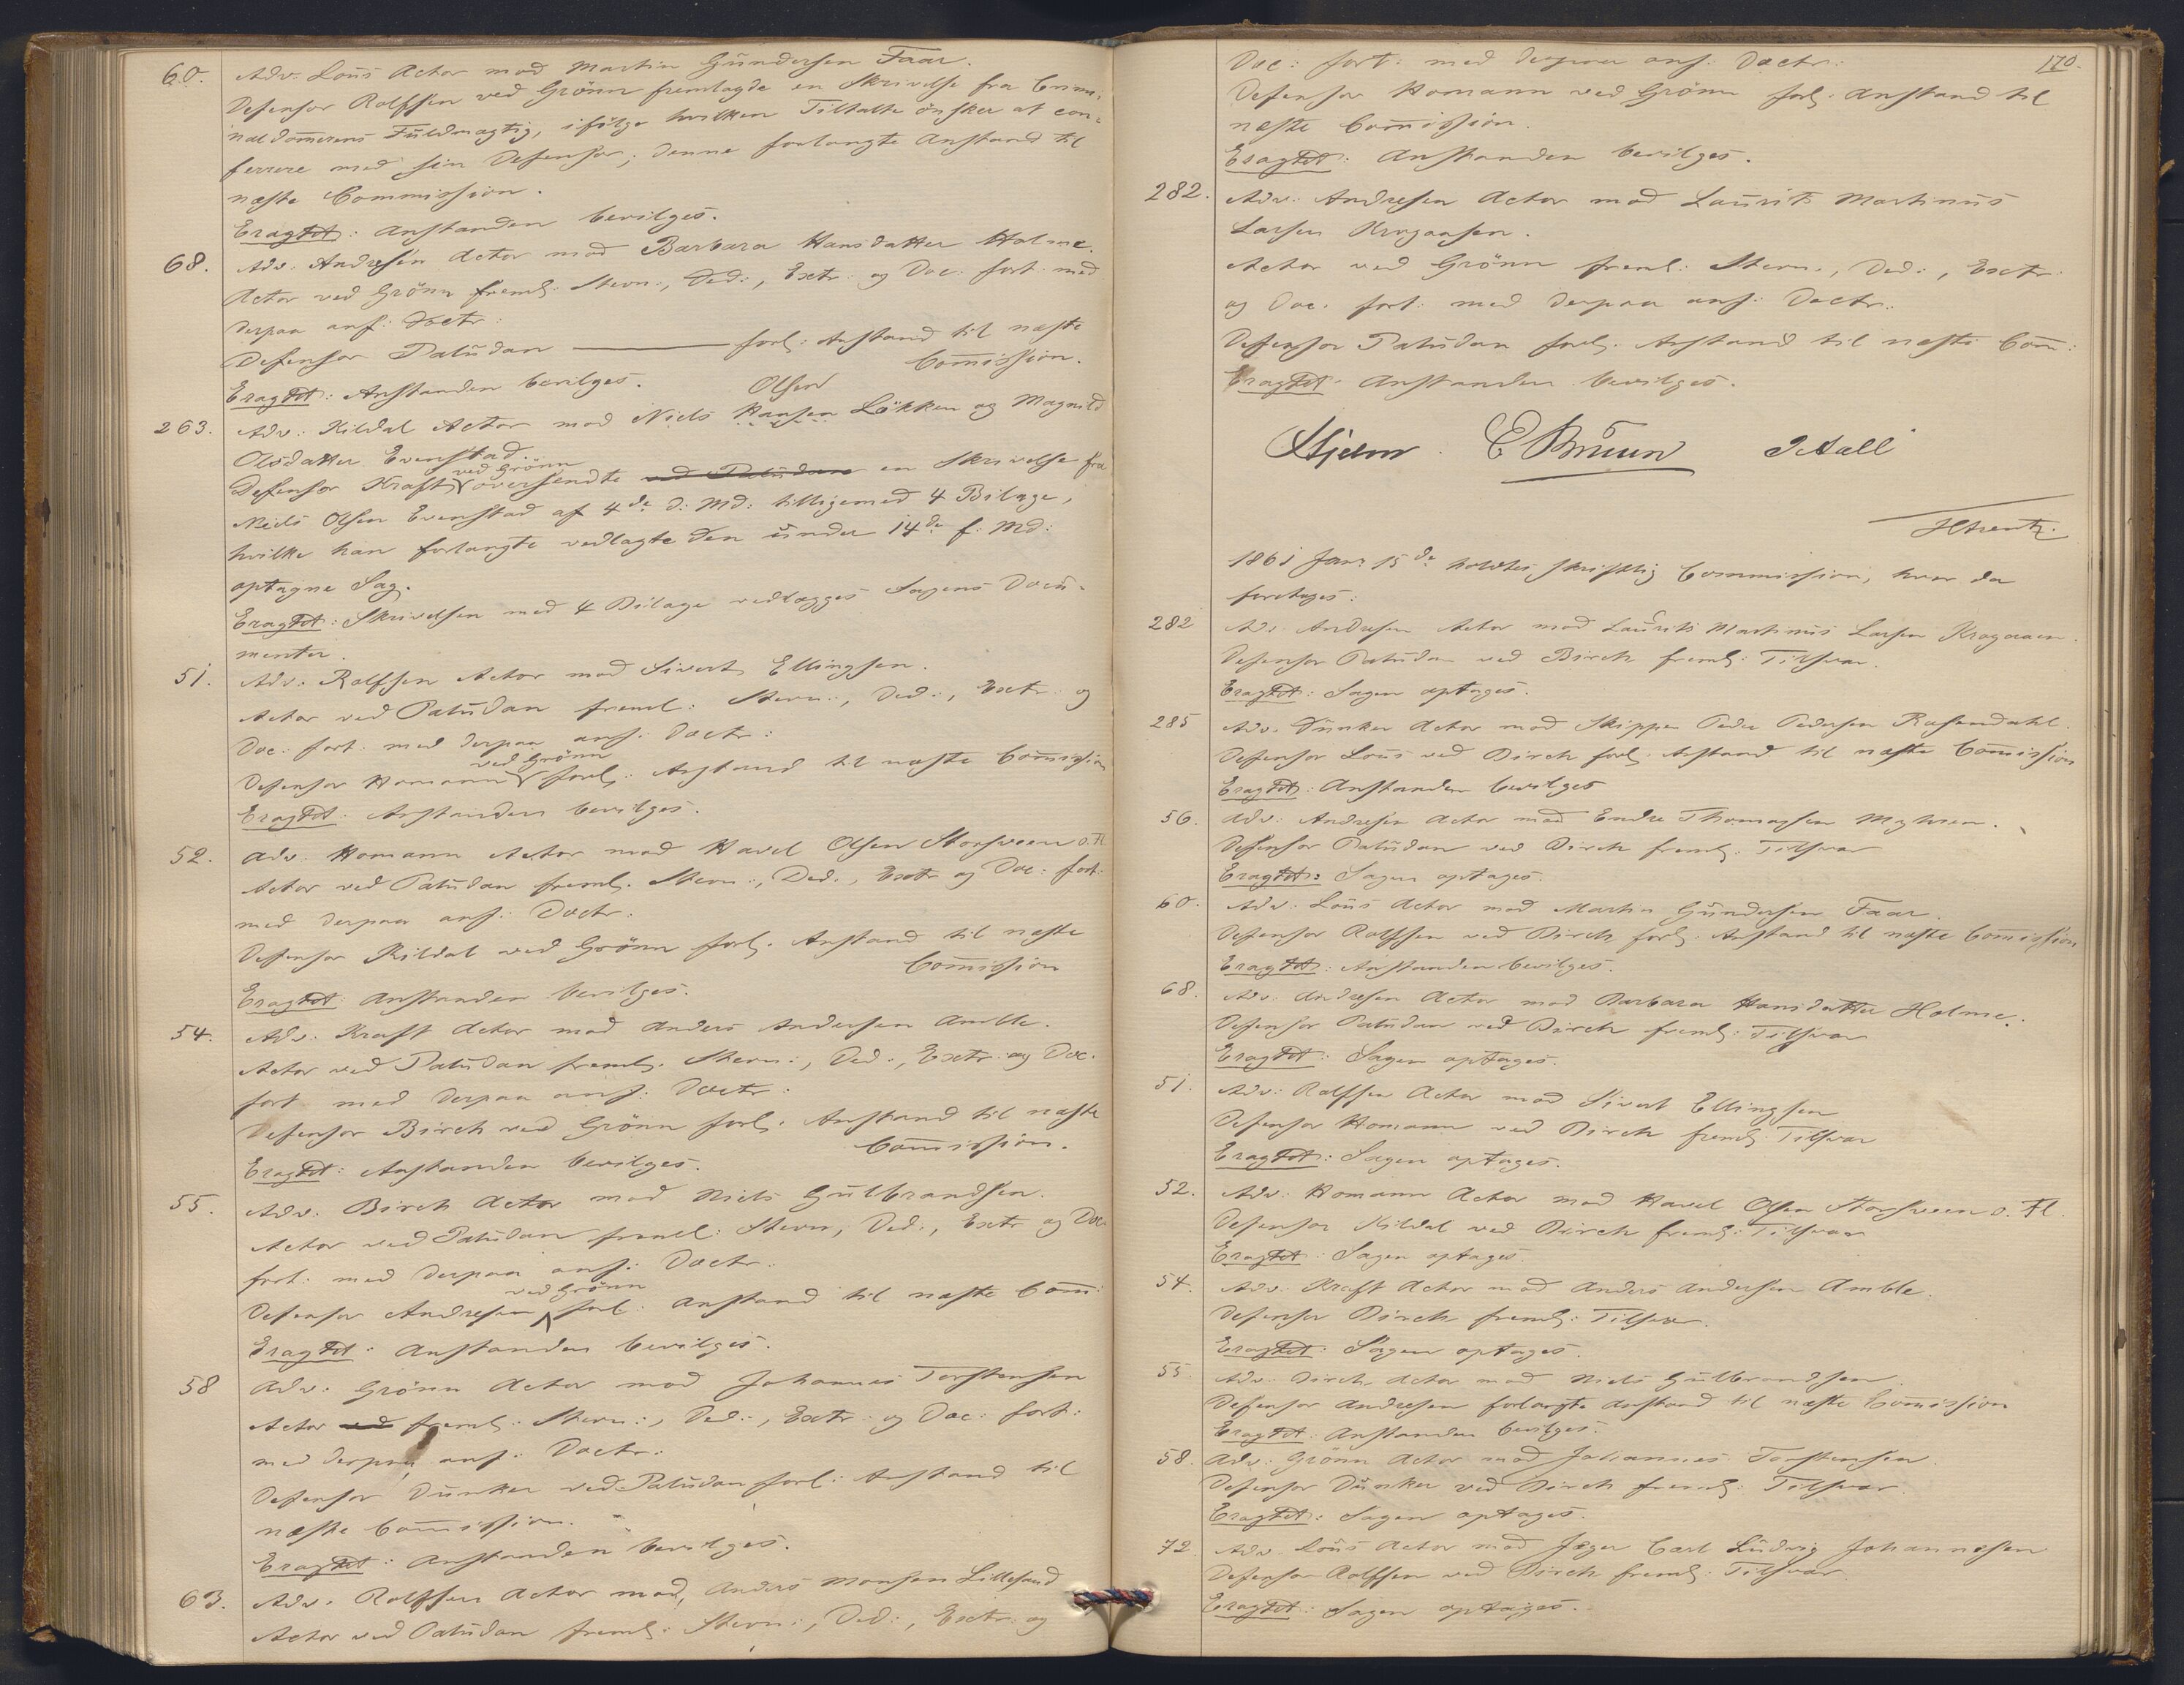 60. Adv. Lous Actor mod Martin Gündersen Faar.
Defensor Rolfsen ved Grönn fremlagde en Skrivelse fra Crimi-
naldomerens Füldmægtig, ifölge hvilken Tiltalte önsker at con-
ferrere med sin Defensor; denne forlangte Anstand til
næste Commission.
Eragtet: Anstanden bevilges.
68. Adv. Andresen Actor mod Barbara Hansdatter Holme.
Actor ved Grönn freml: Stevn:, Ded:, Extr: og Doc: fort: med
derpaa anf: Doctr:
Defensor Palüdan ——— forl: Anstand til næste
Com̄ission.
Eragtet: Anstanden bevilges.
Olsen
263. Adv: Kildal Actor mod Niels Hansen Lökken og Magnild
Olsdatter Evenstad.
ved Grönn
Defensor Kraft oversendte ved Palüdan en Skrivelse fra
Niels Olsen Evenstad af 4de d: Md: tilligemed 4 Bilage,
hvilke han forlangte vedlagte den ünder 14de f: Md:
optagne Sag.
Eragtet: Skrivelsen med 4 Bilage vedlægges Sagens Docü-
menter.
51. Adv. Rolfsen Actor mod Sivert Ellingsen.
Actor ved Palüdan freml: Stevn:, Ded:, Extr: og
Doc: fort: med derpaa anf: Doctr:
ved Grönn
Defensor Homann forl: Anstand til næste Com̄ission
Eragtet: Anstanden bevilges.
52. Adv. Homann Actor mod Havel Olsen Storsveen o. Fl
Actor ved Palüdan freml. Stevn:, Ded:, Extr og Doc: fort.
med derpaa anf: Doctr:
Defensor Kildal ved Grönn forl. Anstand til næste
Com̄ission
Eragtet: Anstanden bevilges.
54. Adv. Kraft Actor mod Anders Andersen Amble.
Actor ved Palüdan freml. Stevn:, Ded:, Extr: og Doc.
fort med derpaa anf: Doctr:
Defensor Birch ved Grönn forl. Anstand til næste
Com̄ission.
Eragtet: Anstanden bevilges.
55. Adv. Birch Actor mod Niels Gülbrandsen.
Actor ved Palüdan freml: Stevn, Ded:, Extr og Doc
fort: med derpaa anf: Doctr.
ved Grönn
Defensor Andresen forl: Anstand til næste Com̄:
Eragtet: Anstanden bevilges.
58 Adv. Grönn Actor mod Johannes Torstensen
Actor ved freml: Stevn:, Ded:, Extr: og Doc: fort:
med derpaa anf: Doctr:
Defensor Dunker ved Palüdan forl: Anstand til
næste Com̄ission.
Eragtet: Anstanden bevilges.
63. Adv. Rolfsen Actor mod Anders Monsen Lillesand
Actor ved Palüdan freml: Stevn:, Ded:, Extr: og
170.
Doc: fort: med derpaa anf: Doctr:
Defensor Homann ved Grönn forl. Anstand til
næste Com̄ission.
Eragtet: Anstanden bevilges.
282. Adv. Andresen Actor mod Laurits Martinüs
Larsen Kragaasen.
Actor ved Grönn freml: Stevn:, Ded:, Extr:
og Doc. fort: med derpaa anf: Doctr.
Defensor Palüdan forl. Anstand til næste Com̄:
Eragtet: Anstanden bevilges.
Hjelm. E Bruun
1861 Janr 15de holdtes skriftlig Commission, hvor da
foretoges:
282 Adv. Andresen Actor mod Laürits Martinüs Larsen Kragaasen.
Defensor Palüdan ved Birch freml: Tilsvar.
Eragtet: Sagen optages.
285 Adv. Dünker Actor mod Skipper Peder Pedersen Rosendahl.
Defensor Lous ved Birch forl. Anstand til næste Com̄ission
Eragtet: Anstanden bevilges
56. Adv. Andresen Actor mod Endre Thomassen Myhren.
Defensor Palüdan ved Birch freml: Tilsvar
Eragtet: Sagen optages.
60. Adv. Loüs Actor mod Martin Gündersen Faar.
Defensor Rolfsen ved Birch forl. Anstand til næste Com̄ission
Eragtet: Anstanden bevilges.
68. Adv. Andresen Actor mod Barbara Hansdatter Holme.
Defensor Palüdan ved Birch freml: Tilsvar
Eragtet: Sagen optages.
51. Adv: Rolfsen Actor mod Sivert Ellingsen
Defensor Homann ved Birch freml: Tilsvar
Eragtet: Sagen optages.
52. Adv. Homann Actor mod Havel Olsen Storsveen o. Fl.
Defensor Kildal ved Birch freml: Tilsvar
Eragtet: Sagen optages.
54. Adv. Kraft Actor mod Anders Andersen Amble.
Defensor Birch freml: Tilsvar.
Eragtet: Sagen optages.
55. Adv. Birch Actor mod Niels Gülbrandsen.
Defensor Andresen forlangte Anstand til næste Com̄ission
Eragtet: Anstanden bevilges.
58. Adv. Grönn Actor mod Johannes Torstensen.
Defensor Dünker ved Birch freml: Tilsvar.
Eragtet: Sagen optages.
72. Adv. Loüs Actor mod Jæger Carl Lüdvig Johannesen
Defensor Rolfsen ved Birch freml: Tilsvar
Eragtet: Sagen optages.